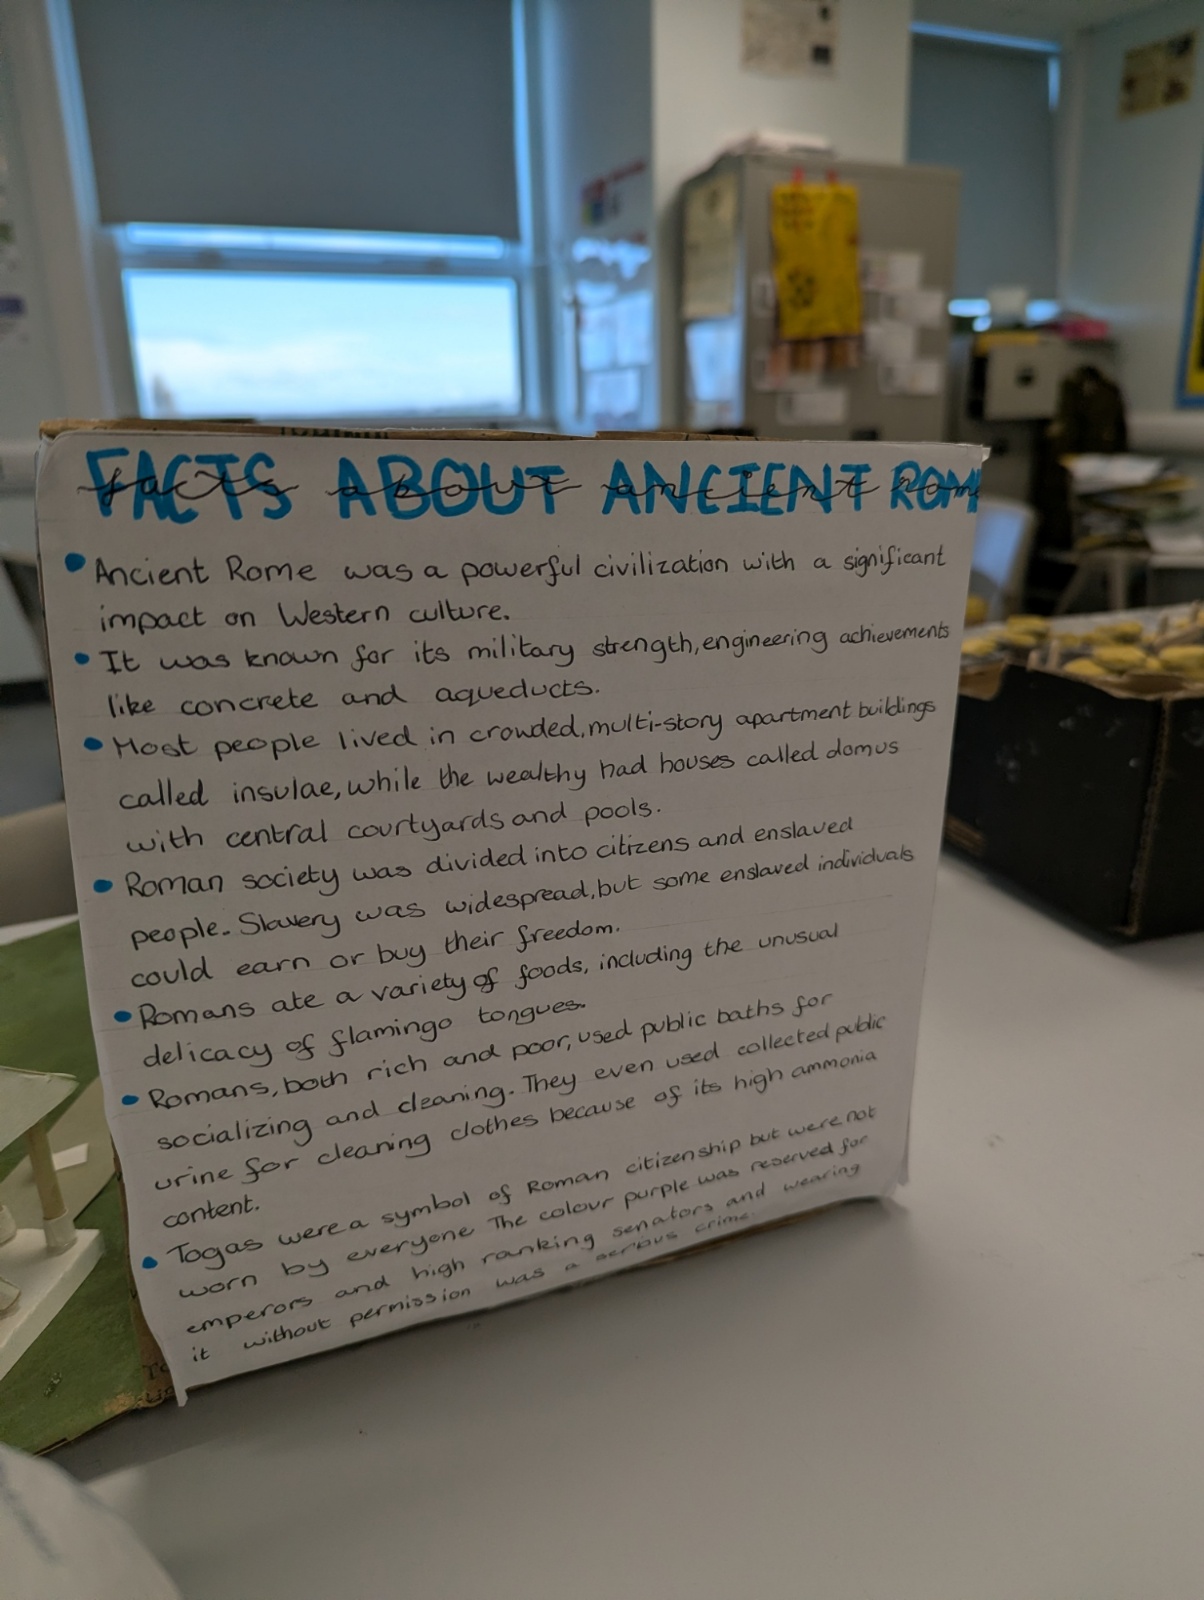 FACTS ABOUT ANCIENT ROME
facts about ancient rome
• Ancient Rome was a powerful civilization with a significant
impact on Western culture.
• It was known for its military strength, engineering achievements
like concrete and aqueducts.
• Most people lived in crowded, multi-story apartment buildings
called insulae, while the wealthy had houses called domus
with central courtyards and pools.
• Roman society was divided into citizens and enslaved
people. Slavery was widespread, but some enslaved individuals
could earn or buy their freedom.
• Romans ate a variety of foods, including the unusual
delicacy of flamingo tongues.
• Romans, both rich and poor, used public baths for
socializing and cleaning. They even used collected public
urine for cleaning clothes because of its high ammonia
content.
• Togas were a symbol of Roman citizenship but were not
worn by everyone The colour purple was reserved for
emperors and high ranking senators and wearing
it without permission was a serious crime.